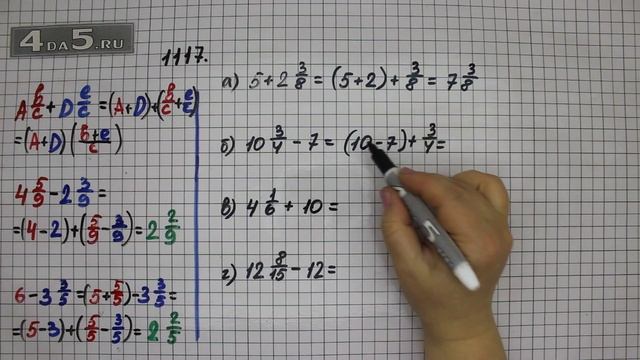 4DA5.RU
1117.
A b/c + D e/c = (A+D)+(b/c + e/c)
= (A+D) (b+e/c)
4 5/9 - 2 3/9 =
= (4-2)+(5/9 - 3/9) = 2 2/9
6 - 3 3/5 = (5+5/5) - 3 3/5 =
= (5-3)+(5/5 - 3/5) = 2 2/5
а) 5+2 3/8 = (5+2)+ 3/8 = 7 3/8
б) 10 3/4 - 7 = (10-7)+ 3/4 =
в) 4 1/6 + 10 =
г) 12 8/15 - 12 =